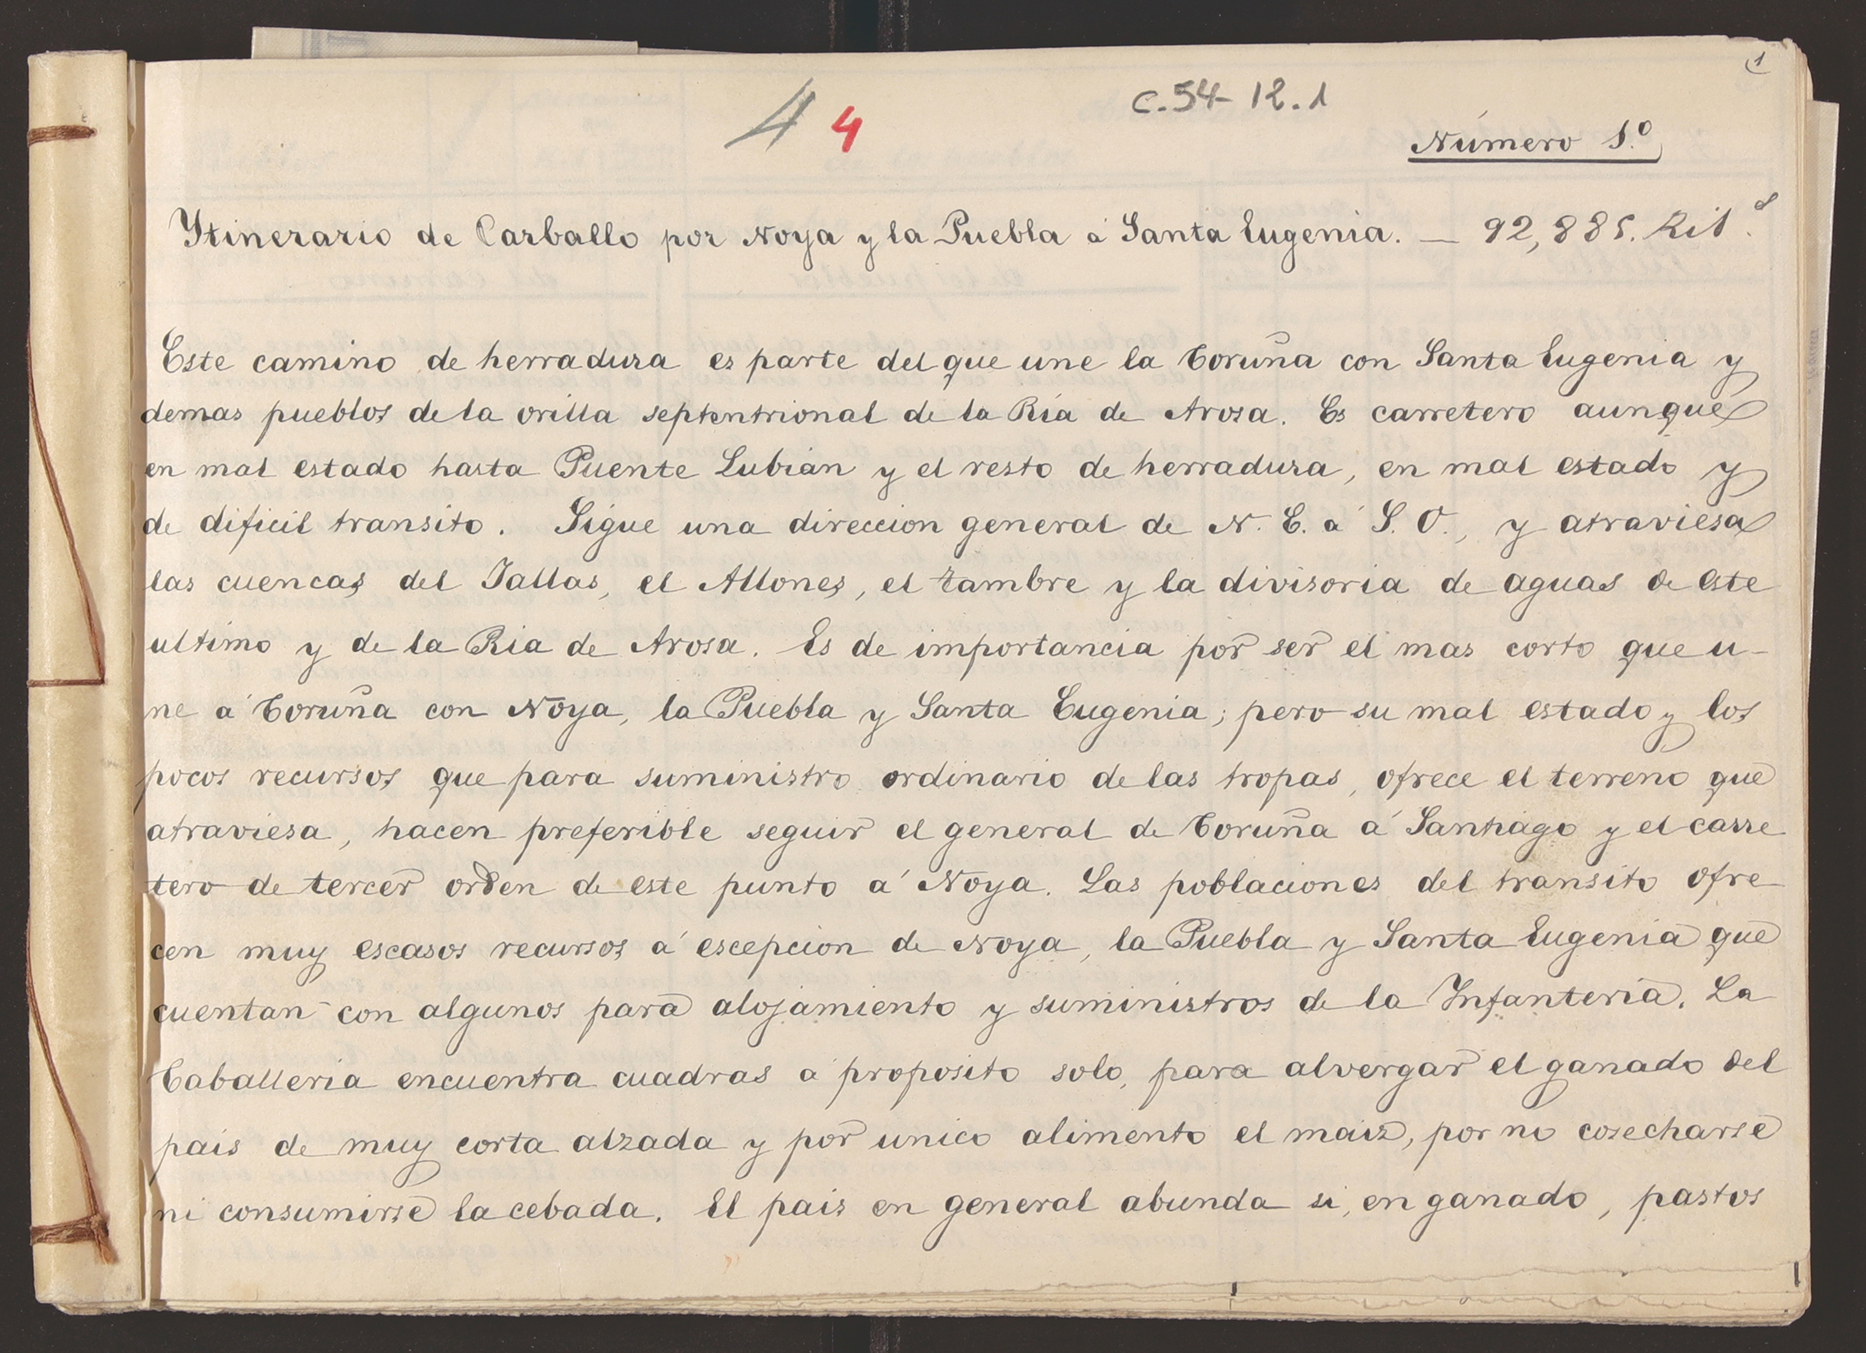 1
4 4
C.54-12.1
Número 1.º
Ytinerario de Carballo por Noya y la Puebla á Santa Eugenia. — 92,885. Kil.s
Este camino de herradura es parte del que une la Coruña con Santa Eugenia y
demas pueblos de la orilla septentrional de la Ria de Arosa. Es carretero aunque
en mal estado hasta Puente Lubián y el resto de herradura, en mal estado y
de dificil transito. Sigue una direccion general de N. E. á S. O., y atraviesa
las cuencas del Jallas, el Allones, el Tambre y la divisoria de aguas de este
ultimo y de la Ria de Arosa. Es de importancia por ser el mas corto que u-
ne á Coruña con Noya, la Puebla y Santa Eugenia; pero su mal estado y los
pocos recursos que para suministro ordinario de las tropas, ofrece el terreno que
atraviesa, hacen preferible seguir el general de Coruña á Santiago y el carre
tero de tercer orden de este punto á Noya. Las poblaciones del transito ofre-
cen muy escasos recursos á escepcion de Noya, la Puebla y Santa Eugenia que
cuentan con algunos para alojamiento y suministros de la Infanteria. La
Caballeria encuentra cuadras á proposito solo, para alvergar el ganado del
pais de muy corta alzada y por unico alimento el maiz, por no cosecharse
ni consumirse la cebada. El pais en general abunda si, en ganado, pastos